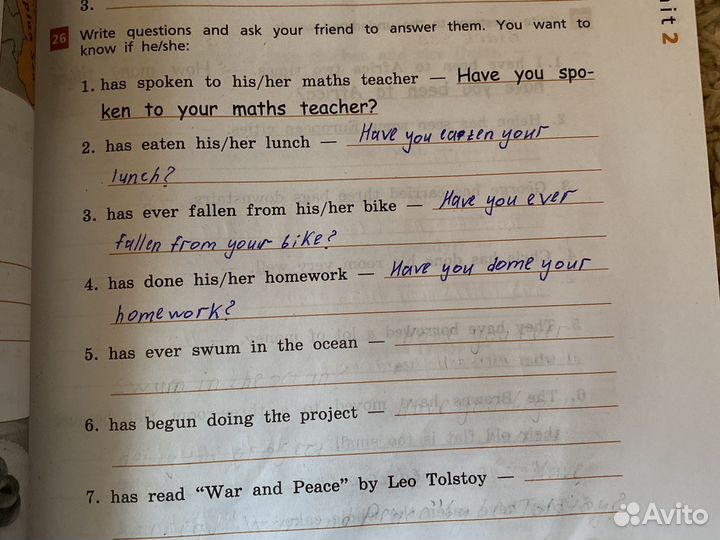 3.
Unit 2
26 Write questions and ask your friend to answer them. You want to
know if he/she:
1. has spoken to his/her maths teacher — Have you spo-
ken to your maths teacher?
2. has eaten his/her lunch — Have you eaten your
lunch?
3. has ever fallen from his/her bike — Have you ever
fallen from your bike?
4. has done his/her homework — Have you dome your
homework?
5. has ever swum in the ocean —
6. has begun doing the project —
7. has read “War and Peace” by Leo Tolstoy —
Avito